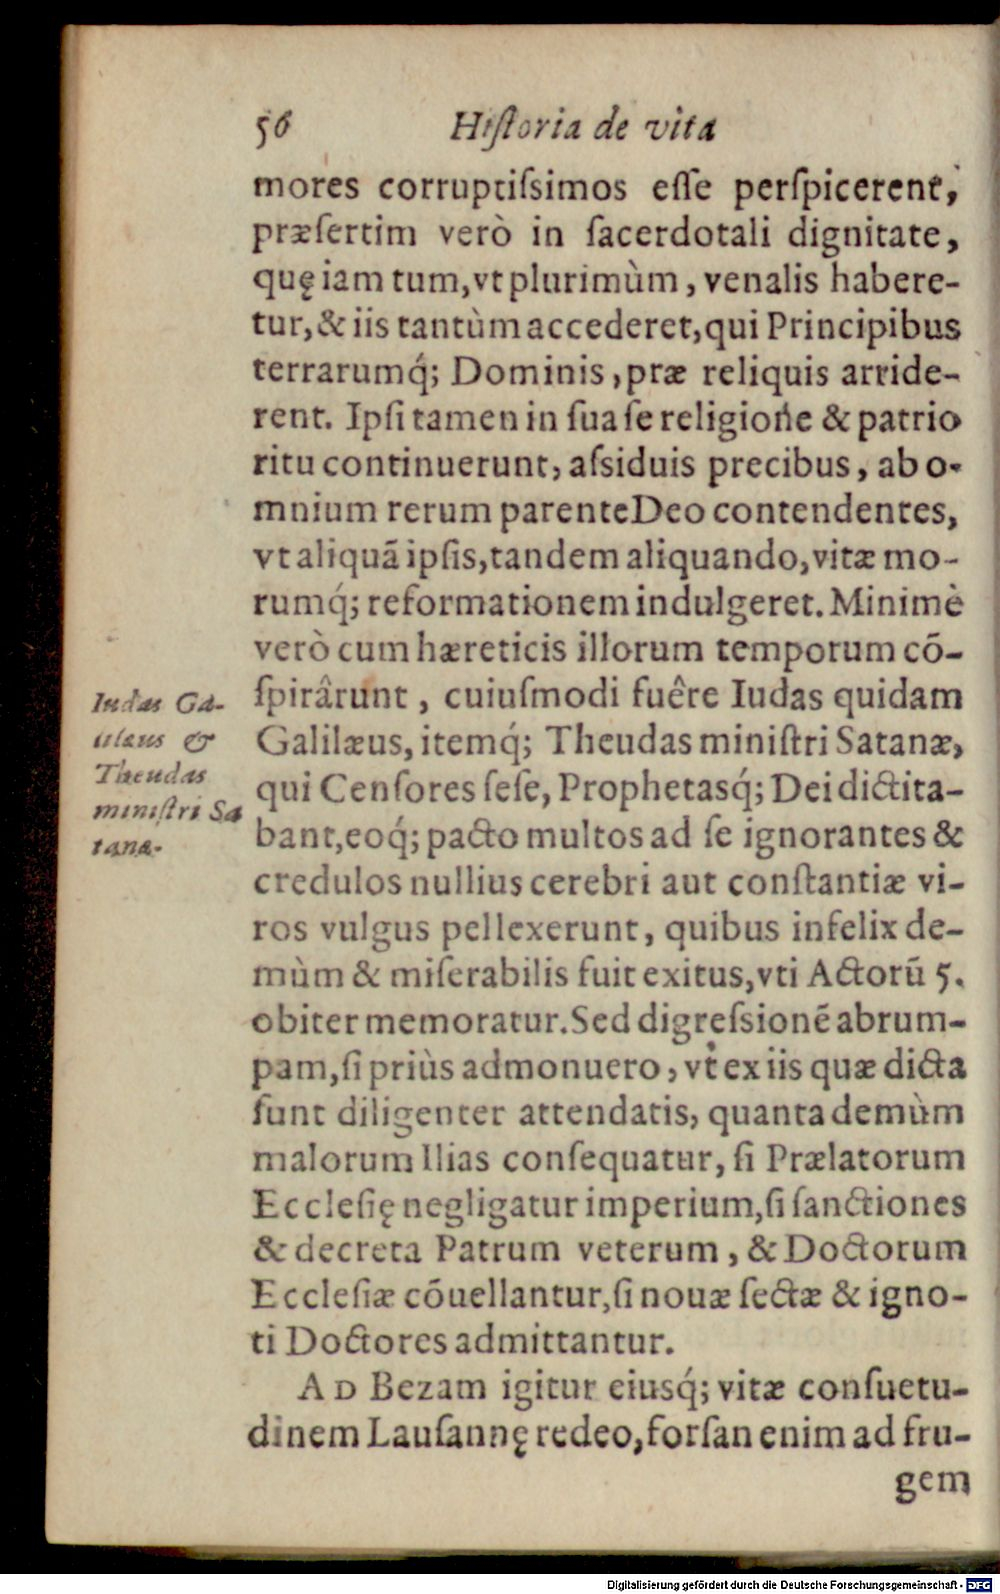 56 Hiſtoria de vita
mores corruptiſsimos eſſe perſpicerent,
præſertim verò in ſacerdotali dignitate,
quę iam tum, vt plurimùm, venalis habere-
tur, & iis tantùm accederet, qui Principibus
terrarumq́; Dominis, præ reliquis arride-
rent. Ipſi tamen in ſua ſe religione & patrio
ritu continuerunt, aſsiduis precibus, ab o-
mnium rerum parente Deo contendentes,
vt aliquã ipſis, tandem aliquando, vitæ mo-
rumq́; reformationem indulgeret. Minimè
verò cum hæreticis illorum temporum cõ-
ſpirârunt, cuiuſmodi fuêre Iudas quidam
Galilæus, itemq́; Theudas miniſtri Satanæ,
qui Cenſores ſeſe, Prophetasq́; Dei dictita-
bant, eoq́; pacto multos ad ſe ignorantes &
credulos nullius cerebri aut conſtantiæ vi-
ros vulgus pellexerunt, quibus infelix de-
mùm & miſerabilis fuit exitus, vti Actorũ 5.
obiter memoratur. Sed digreſsionẽ abrum-
pam, ſi priùs admonuero, vt ex iis quæ dicta
ſunt diligenter attendatis, quanta demùm
malorum Ilias conſequatur, ſi Prælatorum
Eccleſię negligatur imperium, ſi ſanctiones
& decreta Patrum veterum, & Doctorum
Eccleſiæ cõuellantur, ſi nouæ ſectæ & igno-
ti Doctores admittantur.
AD Bezam igitur eiusq́; vitæ conſuetu-
dinem Lauſannę redeo, forſan enim ad fru-
gem
Iudas Ga-
lilæus &
Theudas
miniſtri Sa
tanæ.
Digitalisierung gefördert durch die Deutsche Forschungsgemeinschaft - DFG